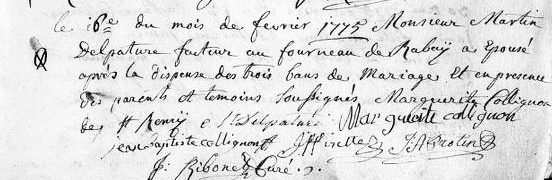 le 16e du mois de fevrier 1775 Monsieur Martin
Delpature facteur au fourneau de Rabuy a Epousé
après la dispense des trois bans de Mariage Et en presence
des parents et temoins Soussignés Marguerite Collignon
de St Remy Marguerite collignon
jean baptiste collignon
J: Ribonet Curé